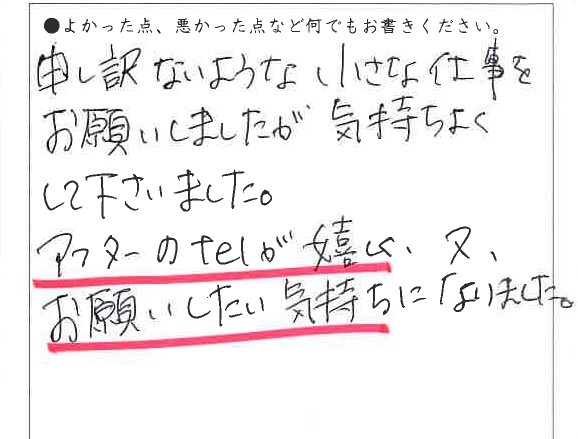 ●よかった点、悪かった点など何でもお書きください。
申し訳ないような小さな仕事を
お願いしましたが気持ちよく
して下さいました。
アフターのtelが嬉しく、又、
お願いしたい気持ちになりました。